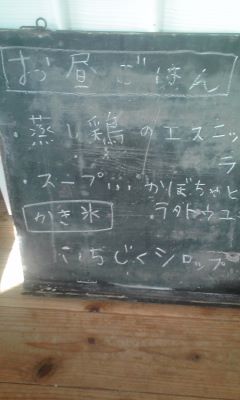 お昼ごはん
・蒸し鶏のエスニッ
ラ
・スープ・・・かぼちゃと
・ラタトゥユ
かき氷
いちじくシロップ